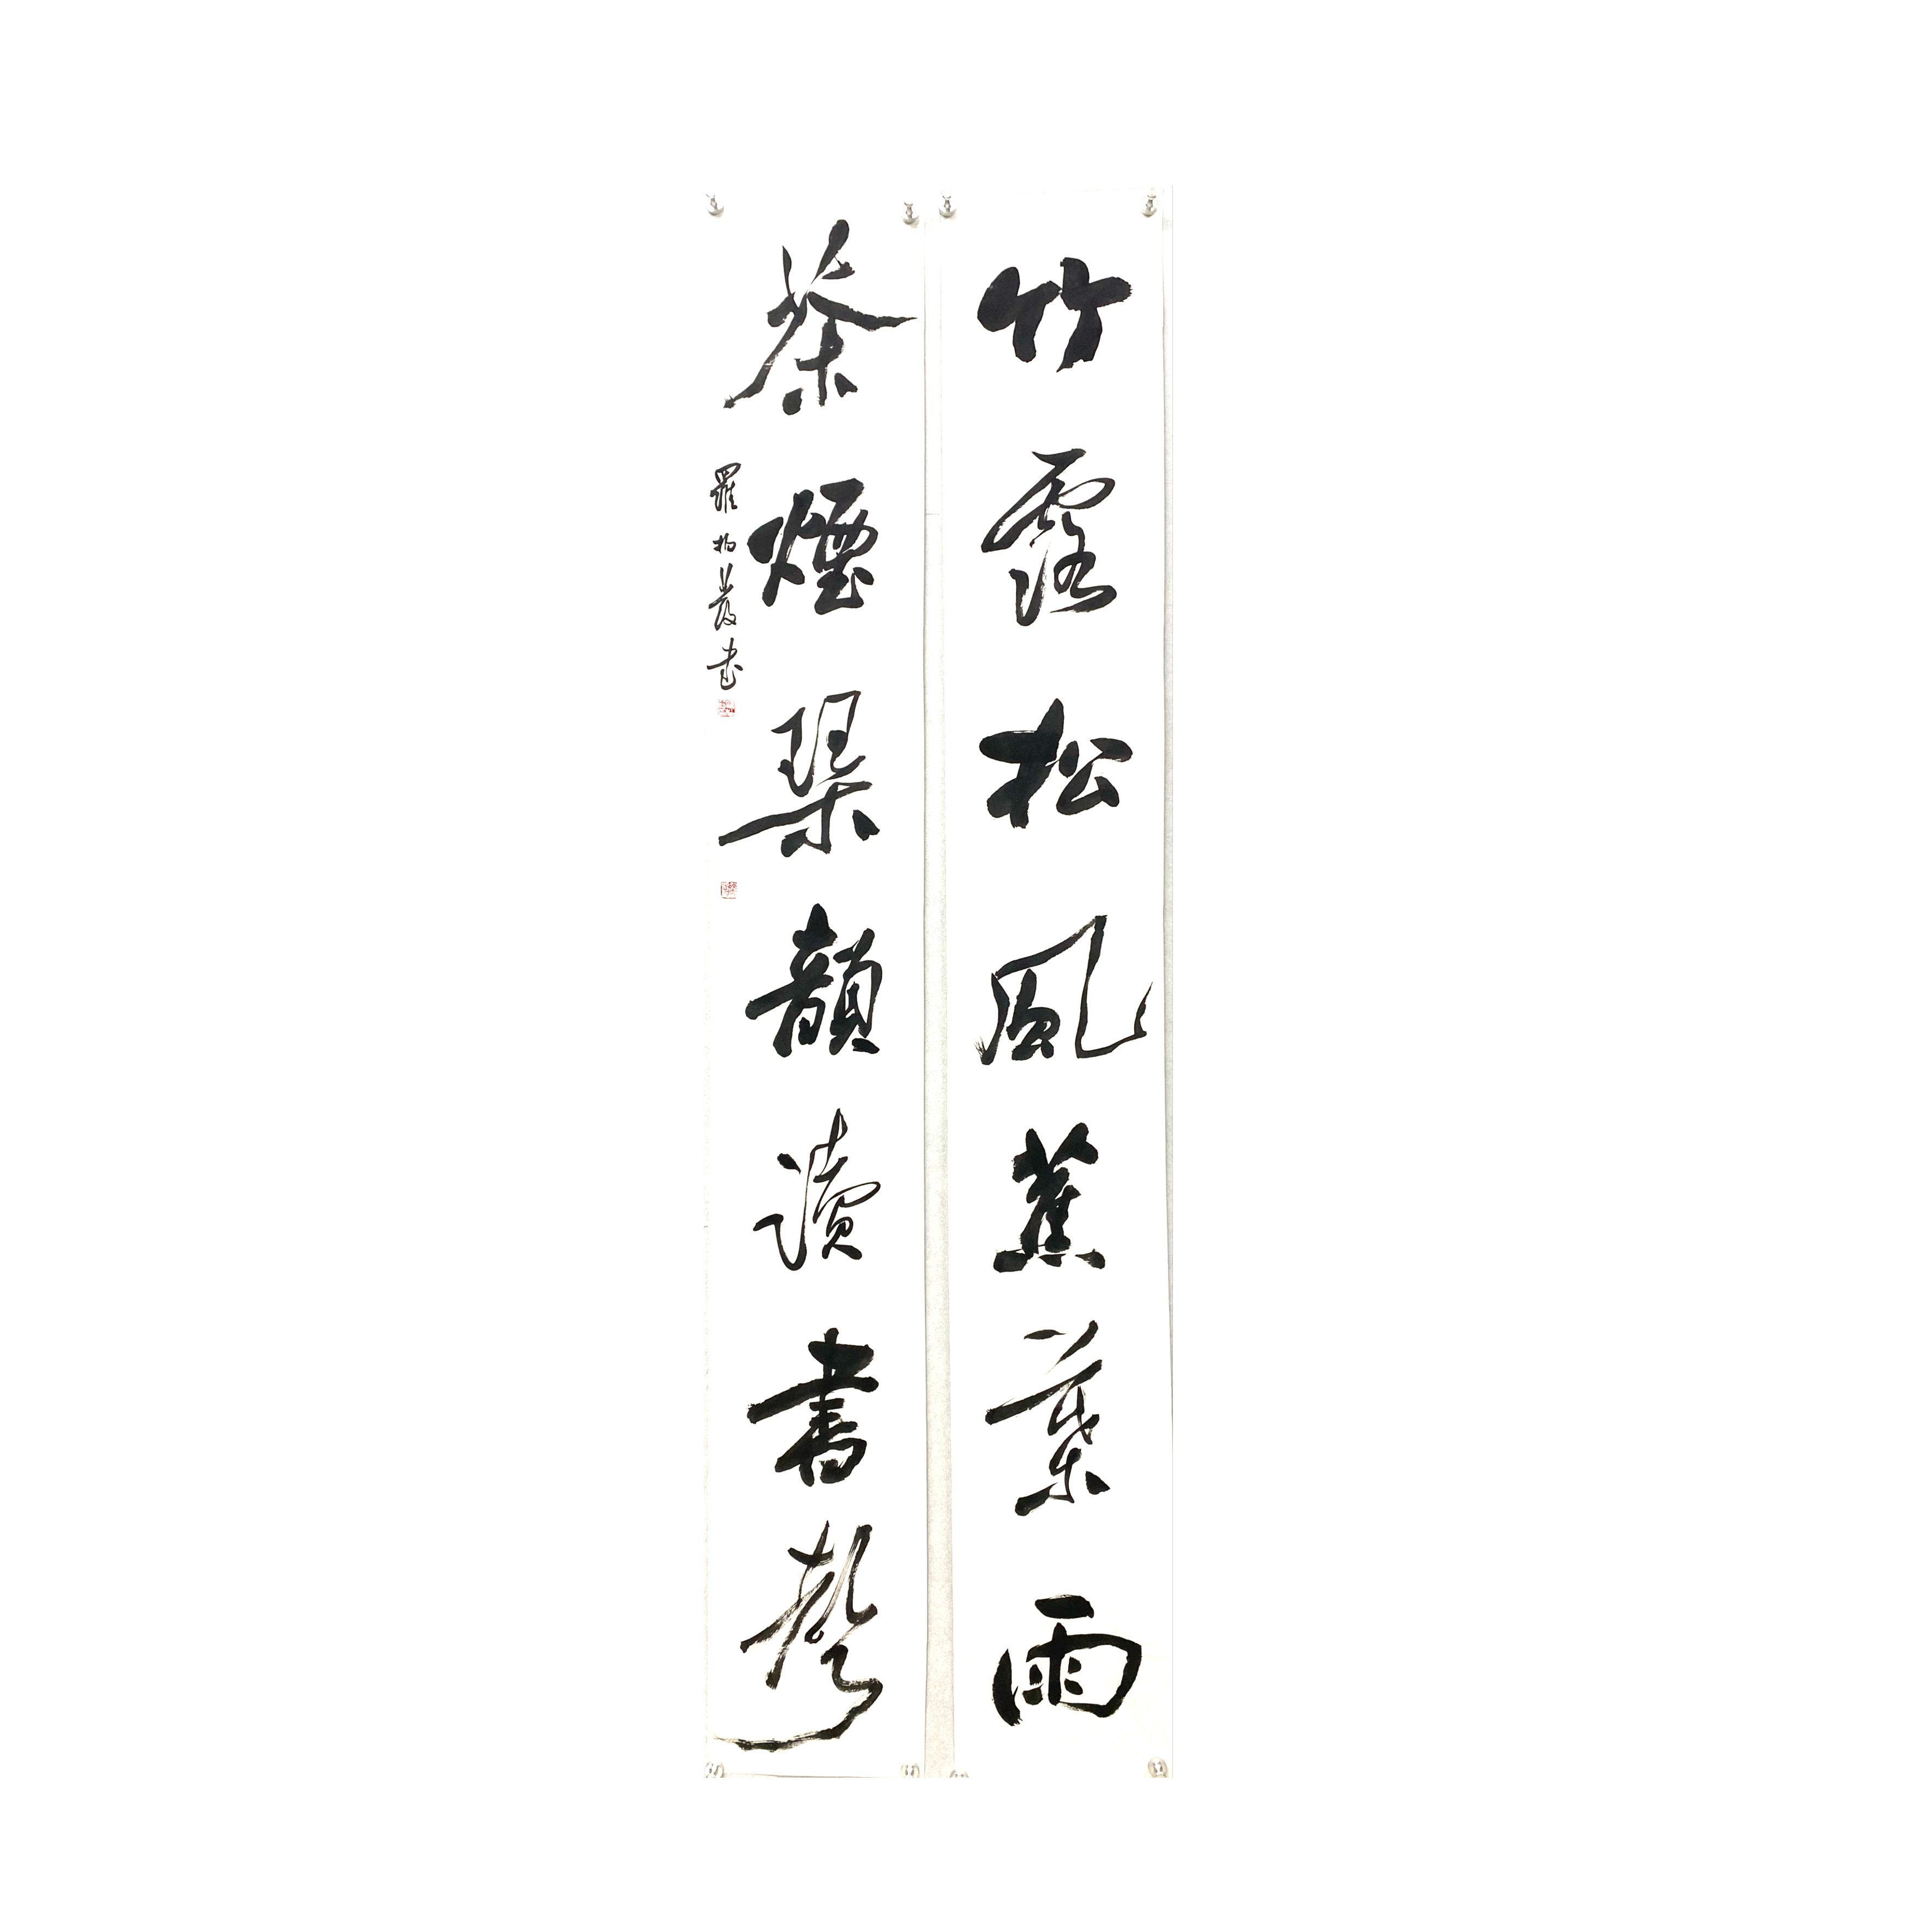 竹露松風蕉葉雨
茶煙琴韻讀書聲
羅柏農書